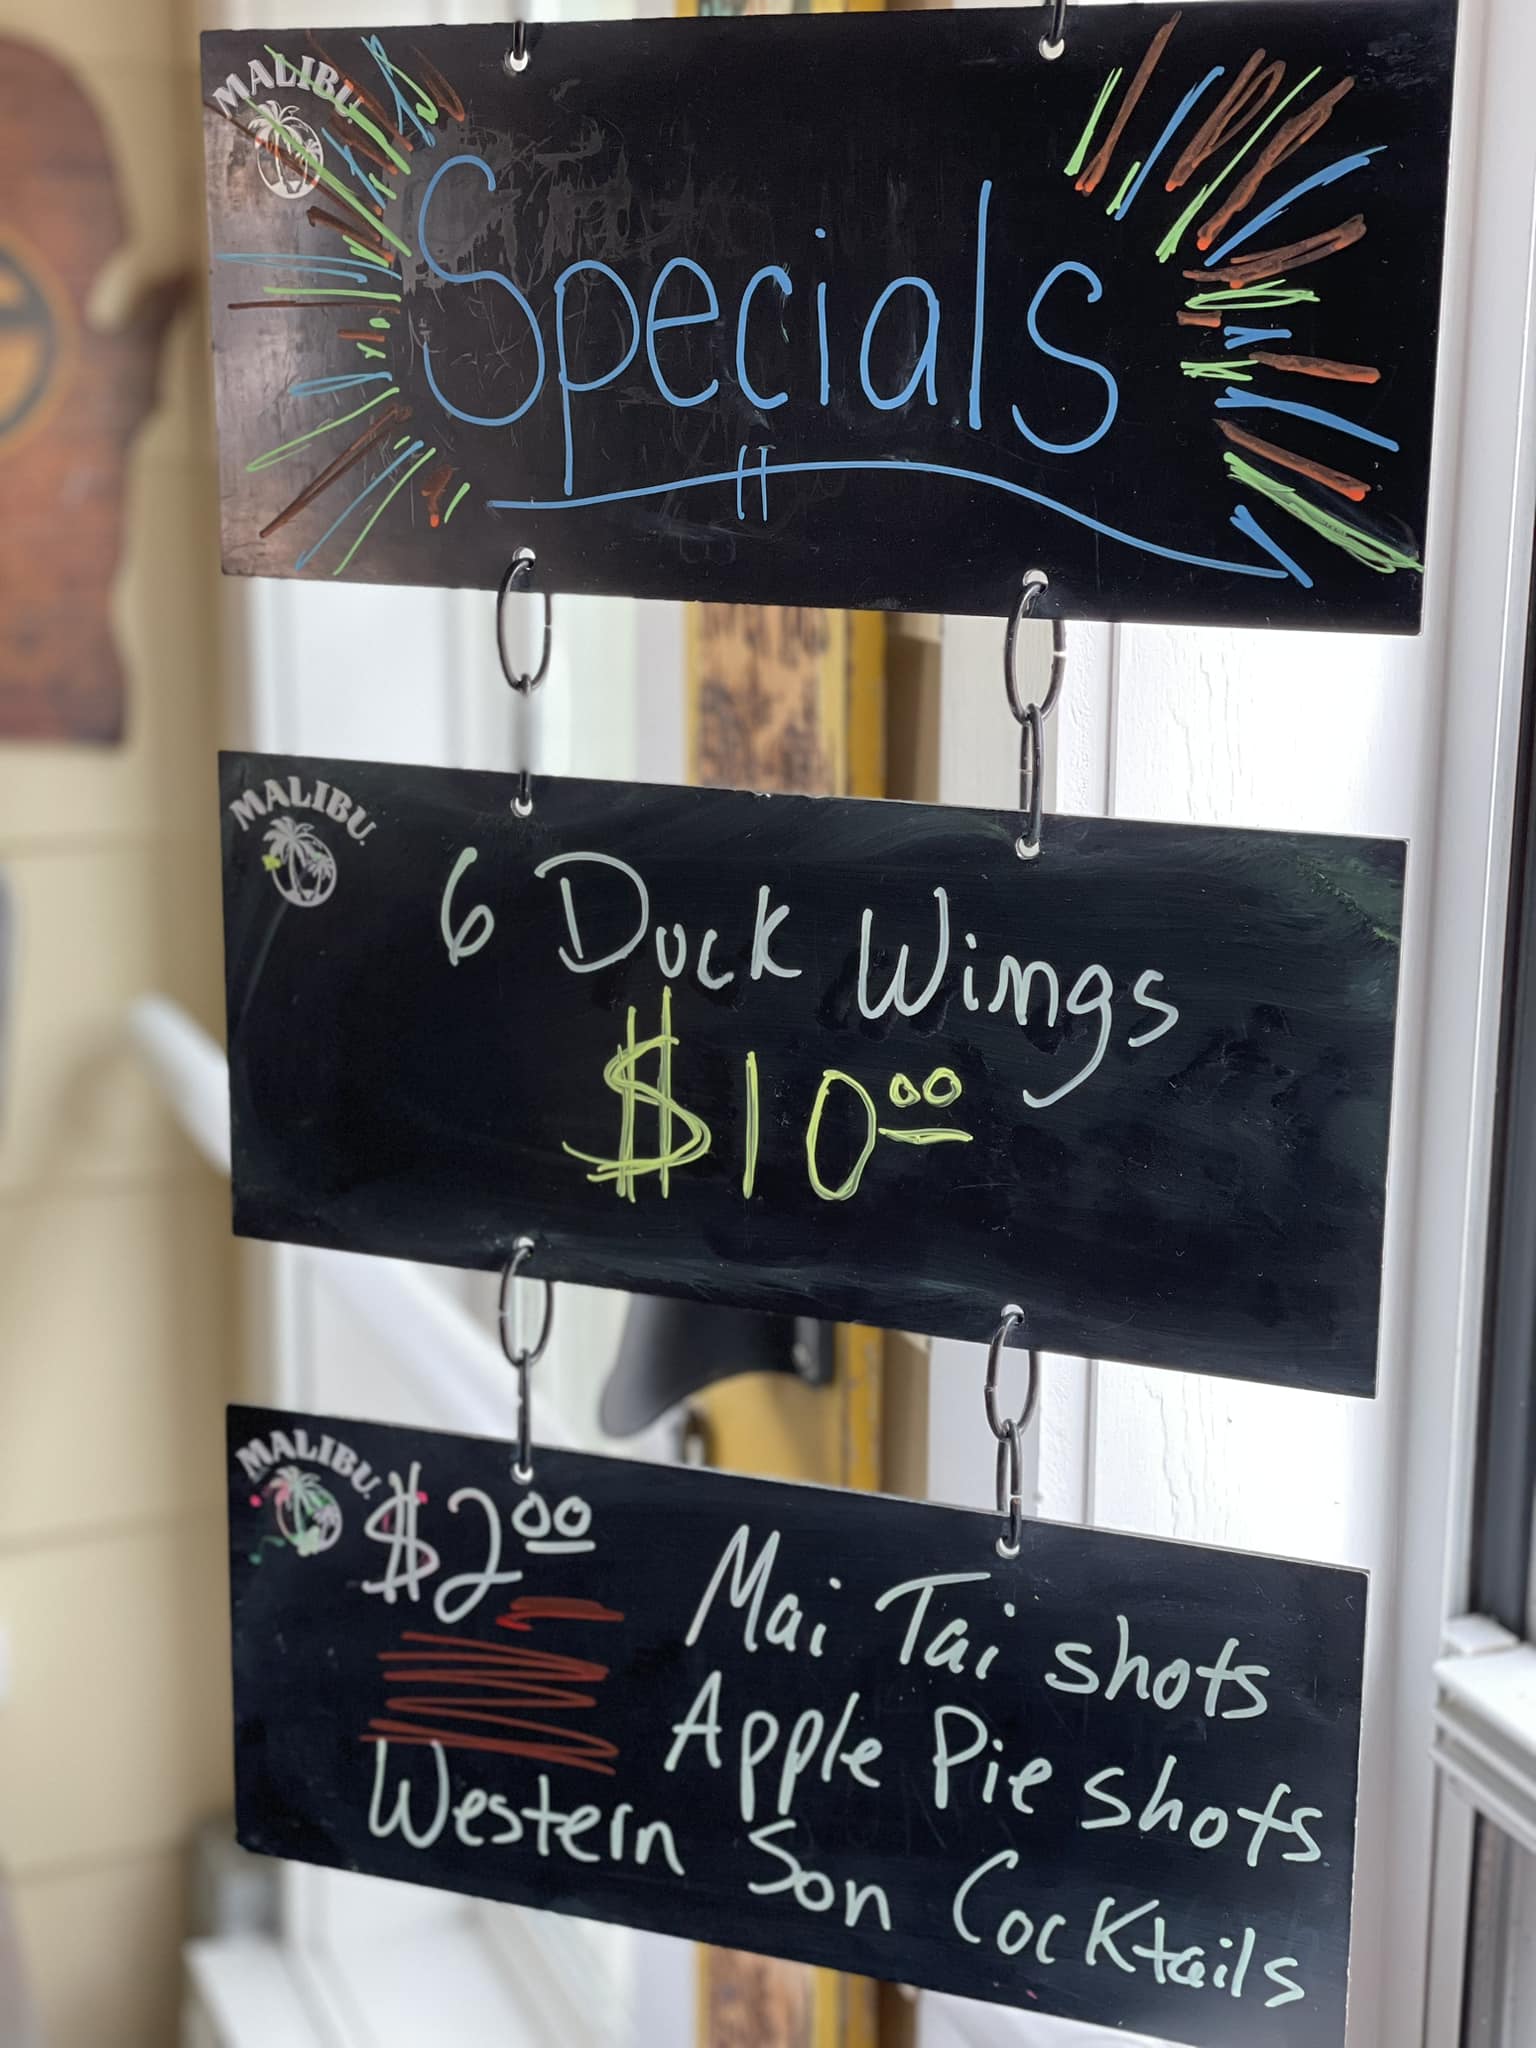 MALIBU.
Specials
MALIBU.
6 Duck Wings
$10.00
MALIBU.
$2.00
Mai Tai shots
Apple Pie shots
Western Son Cocktails